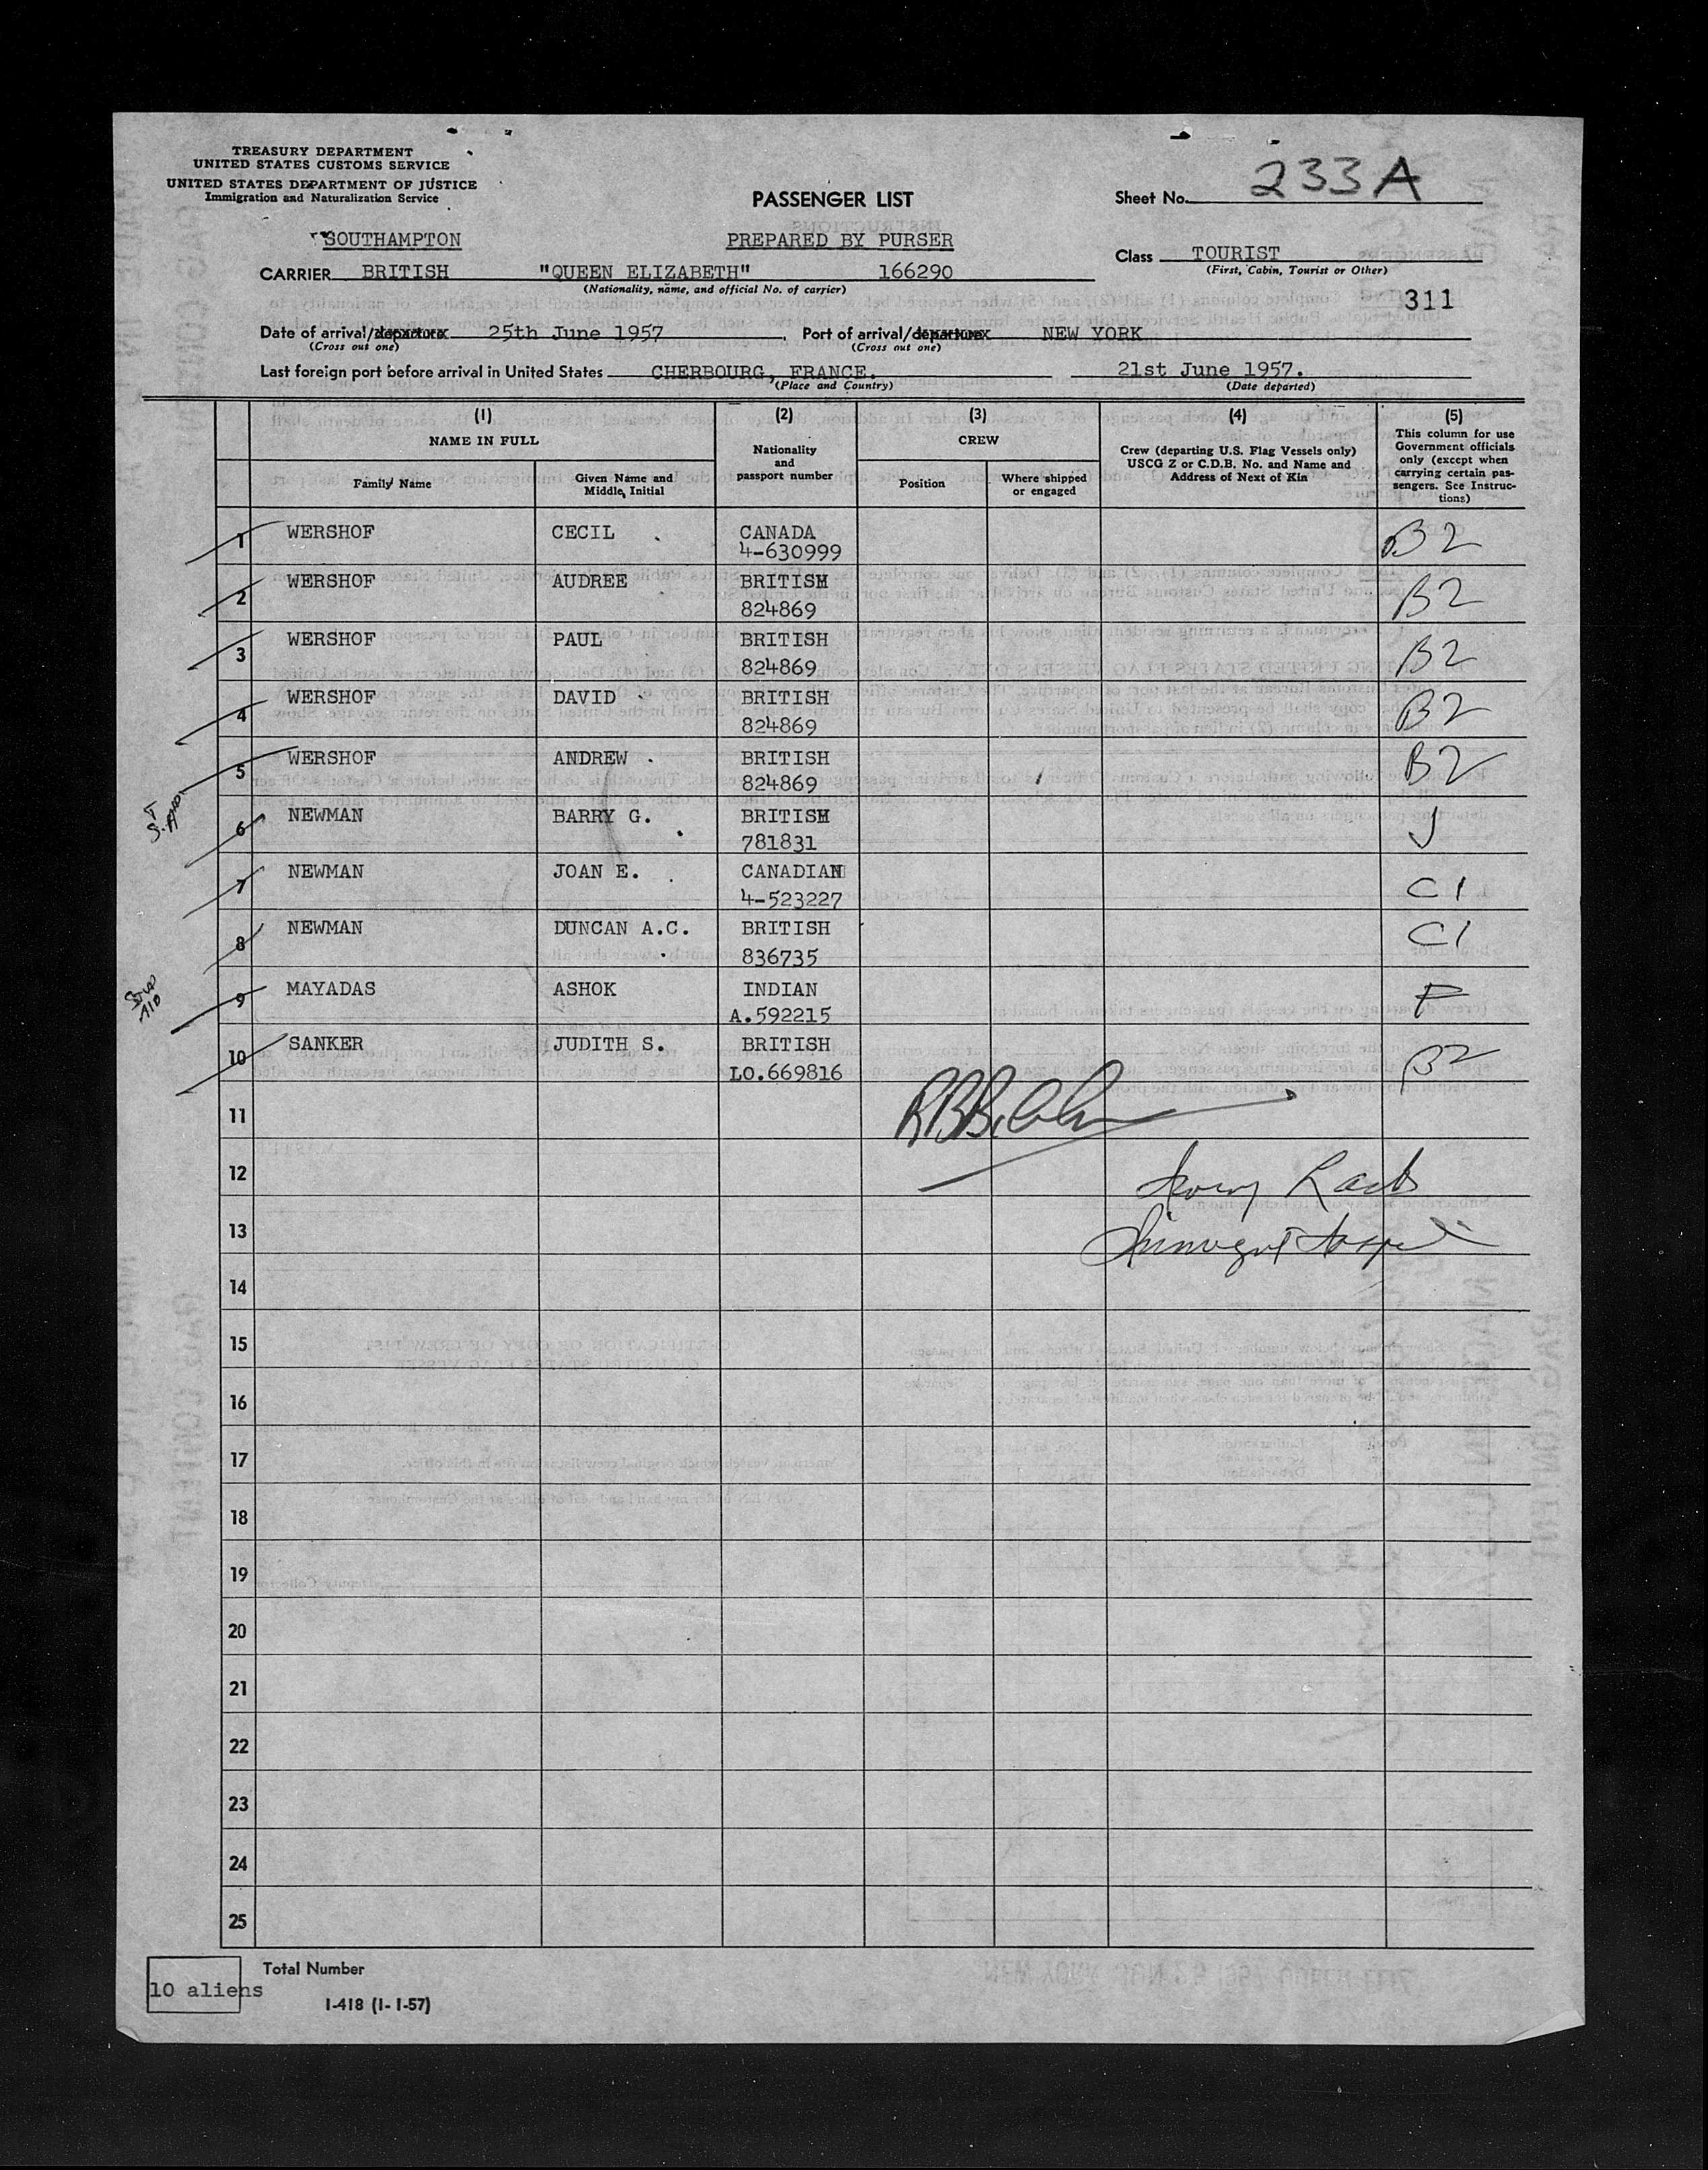 TREASURY DEPARTMENT
UNITED STATES CUSTOMS SERVICE
UNITED STATES DEPARTMENT OF JUSTICE
Immigration and Naturalization Service
PASSENGER LIST
Sheet No. 233A
SOUTHAMPTON
PREPARED BY PURSER
Class TOURIST
(First, Cabin, Tourist or Other)
CARRIER BRITISH "QUEEN ELIZABETH" 166290
(Nationality, name, and official No. of carrier)
311
Date of arrival/departure 25th June 1957, Port of arrival/departure NEW YORK
(Cross out one) (Cross out one)
Last foreign port before arrival in United States CHERBOURG, FRANCE. 21st June 1957.
(Place and Country) (Date departed)
(1) (2) (3) (4) (5)
NAME IN FULL
Family Name
Given Name and Middle Initial
Nationality and passport number
CREW
Position
Where shipped or engaged
Crew (departing U.S. Flag Vessels only)
USCG Z or C.D.B. No. and Name and
Address of Next of Kin
This column for use
Government officials
only (except when
carrying certain pas-
sengers. See Instruc-
tions)
1 WERSHOF CECIL CANADA B2
4-630999
2 WERSHOF AUDREE BRITISH B2
824869
3 WERSHOF PAUL BRITISH B2
824869
4 WERSHOF DAVID BRITISH B2
824869
5 WERSHOF ANDREW BRITISH B2
824869
6 NEWMAN BARRY G. BRITISH J
781831
7 NEWMAN JOAN E. CANADIAN C1
4-523227
8 NEWMAN DUNCAN A.C. BRITISH C1
836735
9 MAYADAS ASHOK INDIAN F
A.592215
10 SANKER JUDITH S. BRITISH B2
LO.669816
11
12
13
14
15
16
17
18
19
20
21
22
23
24
25
10 aliens
Total Number
I-418 (1-1-57)